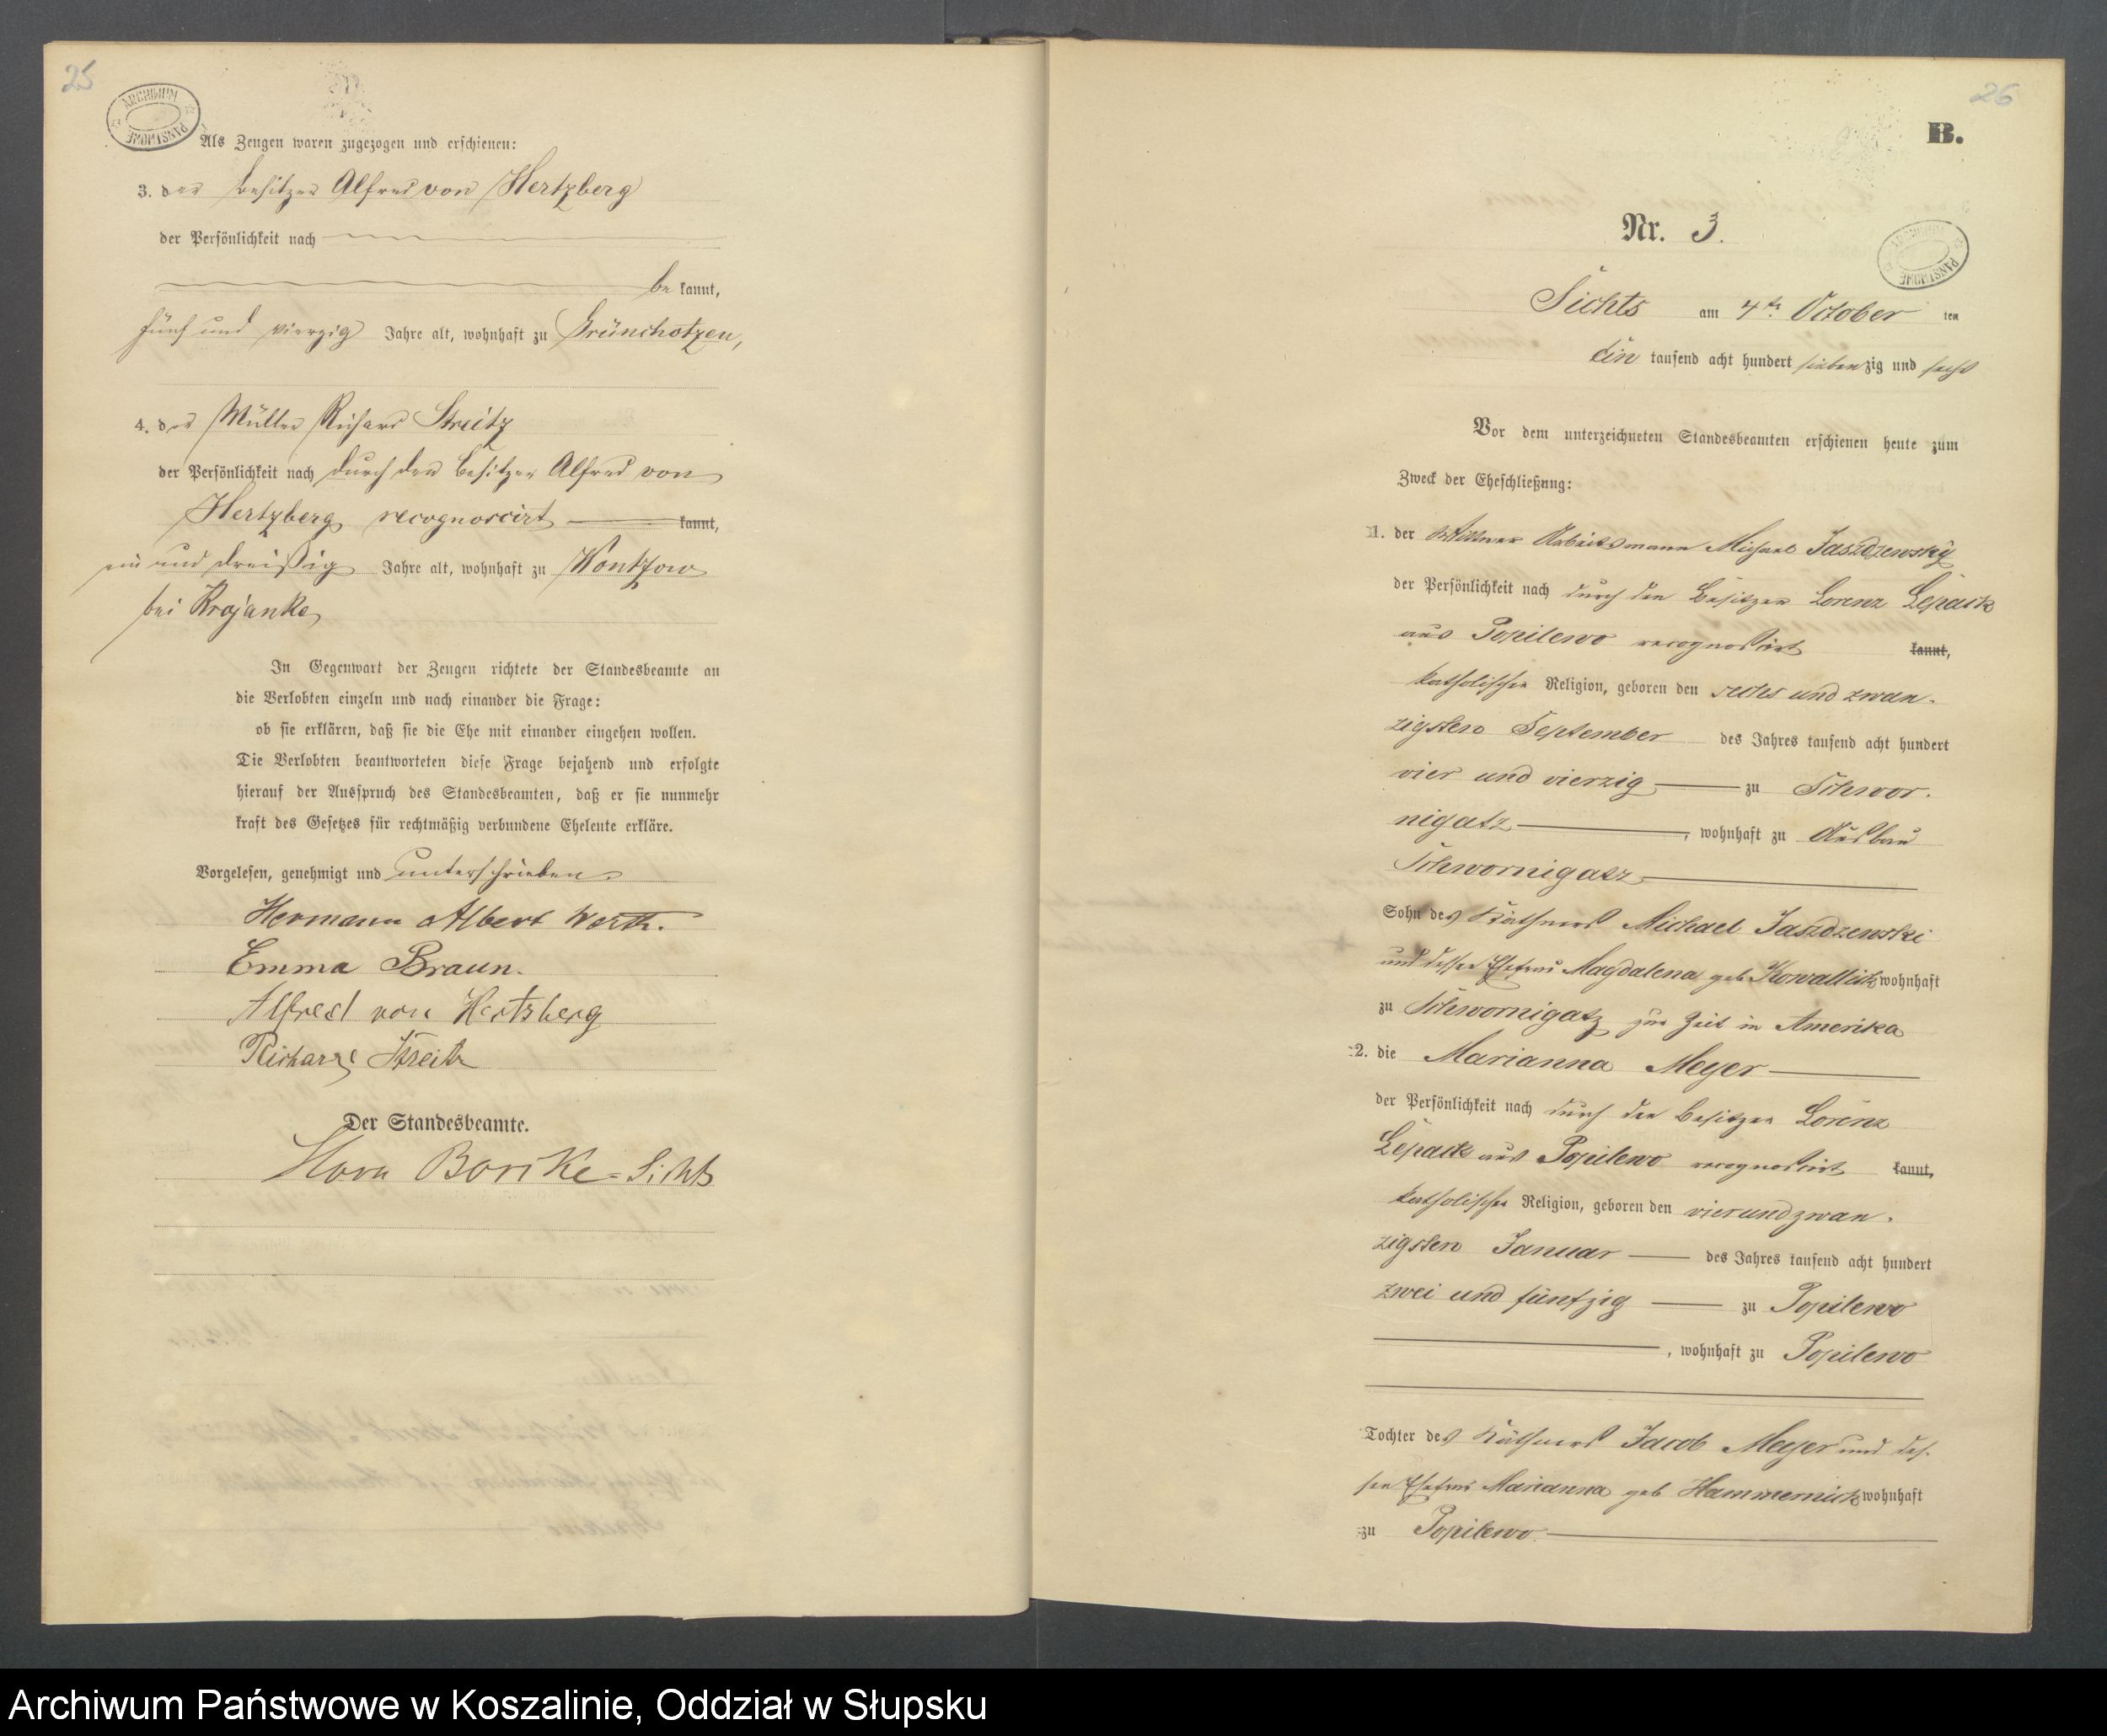 25
ARCHIWUM PAŃSTWOWE
Als Zeugen waren zugezogen und erschienen:
3. der Besitzer Alfred von Hertzberg
der Persönlichkeit nach
be kannt,
fünf und vierzig Jahre alt, wohnhaft zu Grünchotzen,
4. der Müller Richard Streitz
der Persönlichkeit nach durch den Besitzer Alfred von
Hertzberg recognoscirt kannt,
ein und dreißig Jahre alt, wohnhaft zu Wontzow
bei Krojanke
In Gegenwart der Zeugen richtete der Standesbeamte an
die Verlobten einzeln und nach einander die Frage:
ob sie erklären, daß sie die Ehe mit einander eingehen wollen.
Die Verlobten beantworteten diese Frage bejahend und erfolgte
hierauf der Ausspruch des Standesbeamten, daß er sie nunmehr
kraft des Gesetzes für rechtmäßig verbundene Eheleute erkläre.
Vorgelesen, genehmigt und unterschrieben.
Hermann Albert Werth.
Emma Braun.
Alfred von Hertzberg
Richard Streitz
Der Standesbeamte.
Borske = Sichts
26
B.
ARCHIWUM PAŃSTWOWE
Nr. 3.
Sichts am 4ten October ten
Ein tausend acht hundert siebenzig und sechs
Vor dem unterzeichneten Standesbeamten erschienen heute zum
Zweck der Eheschließung:
1. der Wittwer Arbeitsmann Michael Jaszdzewsky
der Persönlichkeit nach durch den Besitzer Lorenz Lepack
aus Popilewo recognoscirt kannt,
katholischer Religion, geboren den sechs und zwan-
zigsten September des Jahres tausend acht hundert
vier und vierzig zu Schwor-
nigatz, wohnhaft zu Ausbau
Schwornigatz
Sohn des Käthners Michael Jaszdzewski
und dessen Ehefrau Magdalena geb Kowallick wohnhaft
zu Schwornigatz zur Zeit in Amerika
2. die Marianna Meyer
der Persönlichkeit nach durch den Besitzer Lorenz
Lepack aus Popilewo recognoscirt kannt,
katholischer Religion, geboren den vierundzwan-
zigsten Januar des Jahres tausend acht hundert
zwei und fünfzig zu Popilewo
, wohnhaft zu Popilewo
Tochter des Käthners Jacob Meyer und des-
sen Ehefrau Marianna geb Hammernick wohnhaft
zu Popilewo
Archiwum Państwowe w Koszalinie, Oddział w Słupsku